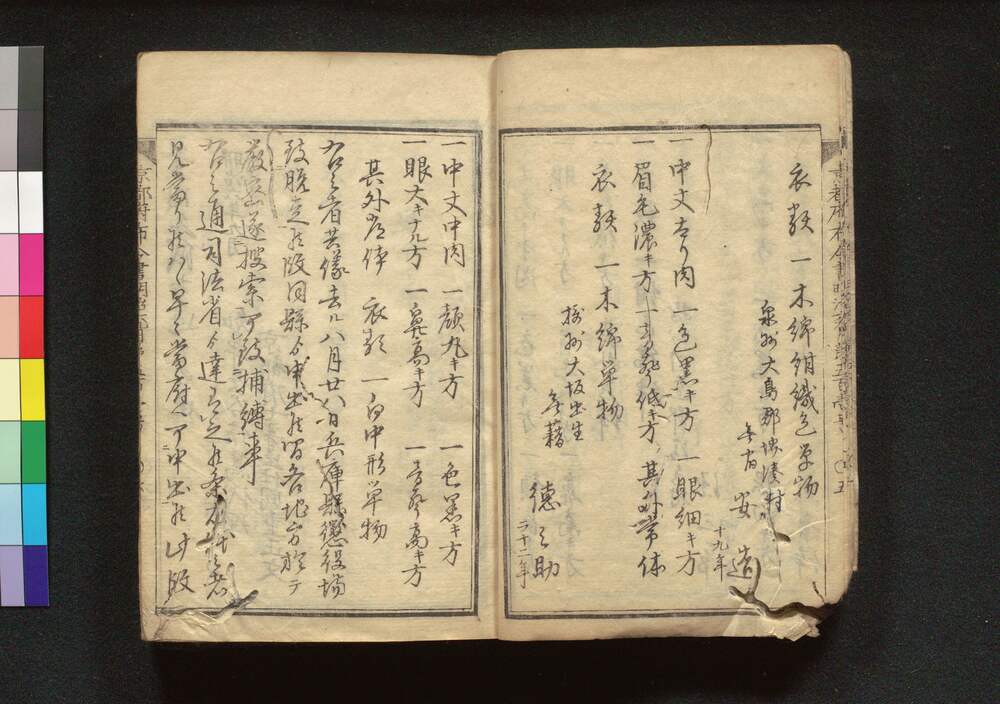 衣類 一木綿紺織色単物
泉州大鳥郡塊湊村
無宿 安造
十九年
一中丈太り肉 一色黒キ方 一眼細キ方
一眉毛濃キ方 一言舌低キ方 其外常体
衣類 一木綿単物
摂州大坂出生
無籍 徳之助
二十二年
一中丈中肉 一顔丸キ方 一色黒キ方
一眼大キナル方 一鼻高キ方 一言舌高キ方
其外常体 衣類 一白中形単物
右之者共儀去ル八月廿八日兵庫県懲役場
致脱走候段同県ゟ申出候間各地方於テ
厳密遂捜索可致捕縛事
右之通司法省ゟ達有之候条右体之者
見当り候ハヽ早々当府ヘ可申出候此段